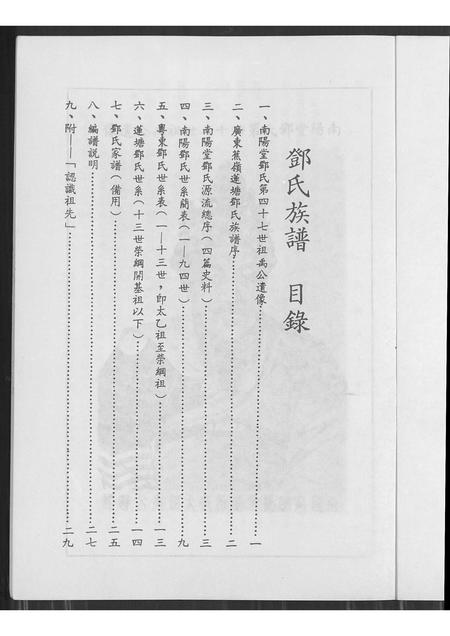 鄧氏族譜 目錄
一、南陽堂鄧氏第四十七世祖禹公遺像………一
二、廣東蕉嶺蓮塘鄧氏族譜序………二
三、南陽堂鄧氏源流總序(四篇史料)………三
四、南陽鄧氏世系簡表(一—九四世)………九
五、粵東鄧氏世系表(一—十三世,即太乙祖至榮綱祖)………一三
六、蓮塘鄧氏世系(十三世榮綱開基祖以下)………一四
七、鄧氏家譜(備用)………二五
八、編譜説明………二七
九、附——「認識祖先」………二九